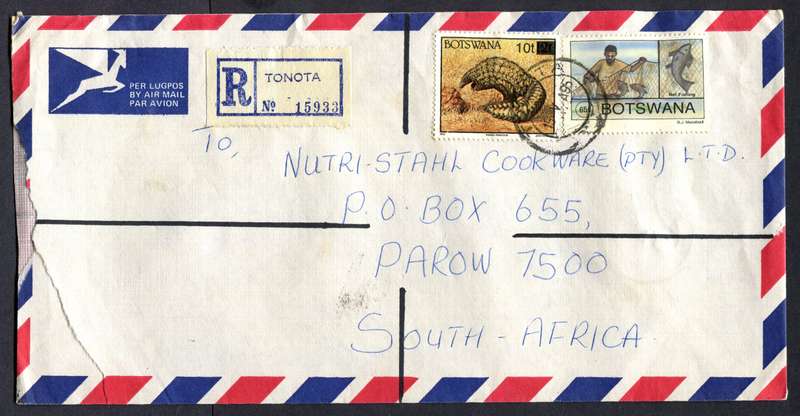 PER LUGPOS
BY AIR MAIL
PAR AVION
R
TONOTA
No 15933
BOTSWANA 10t
Net Fishing
65t
BOTSWANA
To,
NUTRI-STAHL COOKWARE (PTY) L.T.D.
P.O. BOX 655,
PAROW 7500
SOUTH-AFRICA